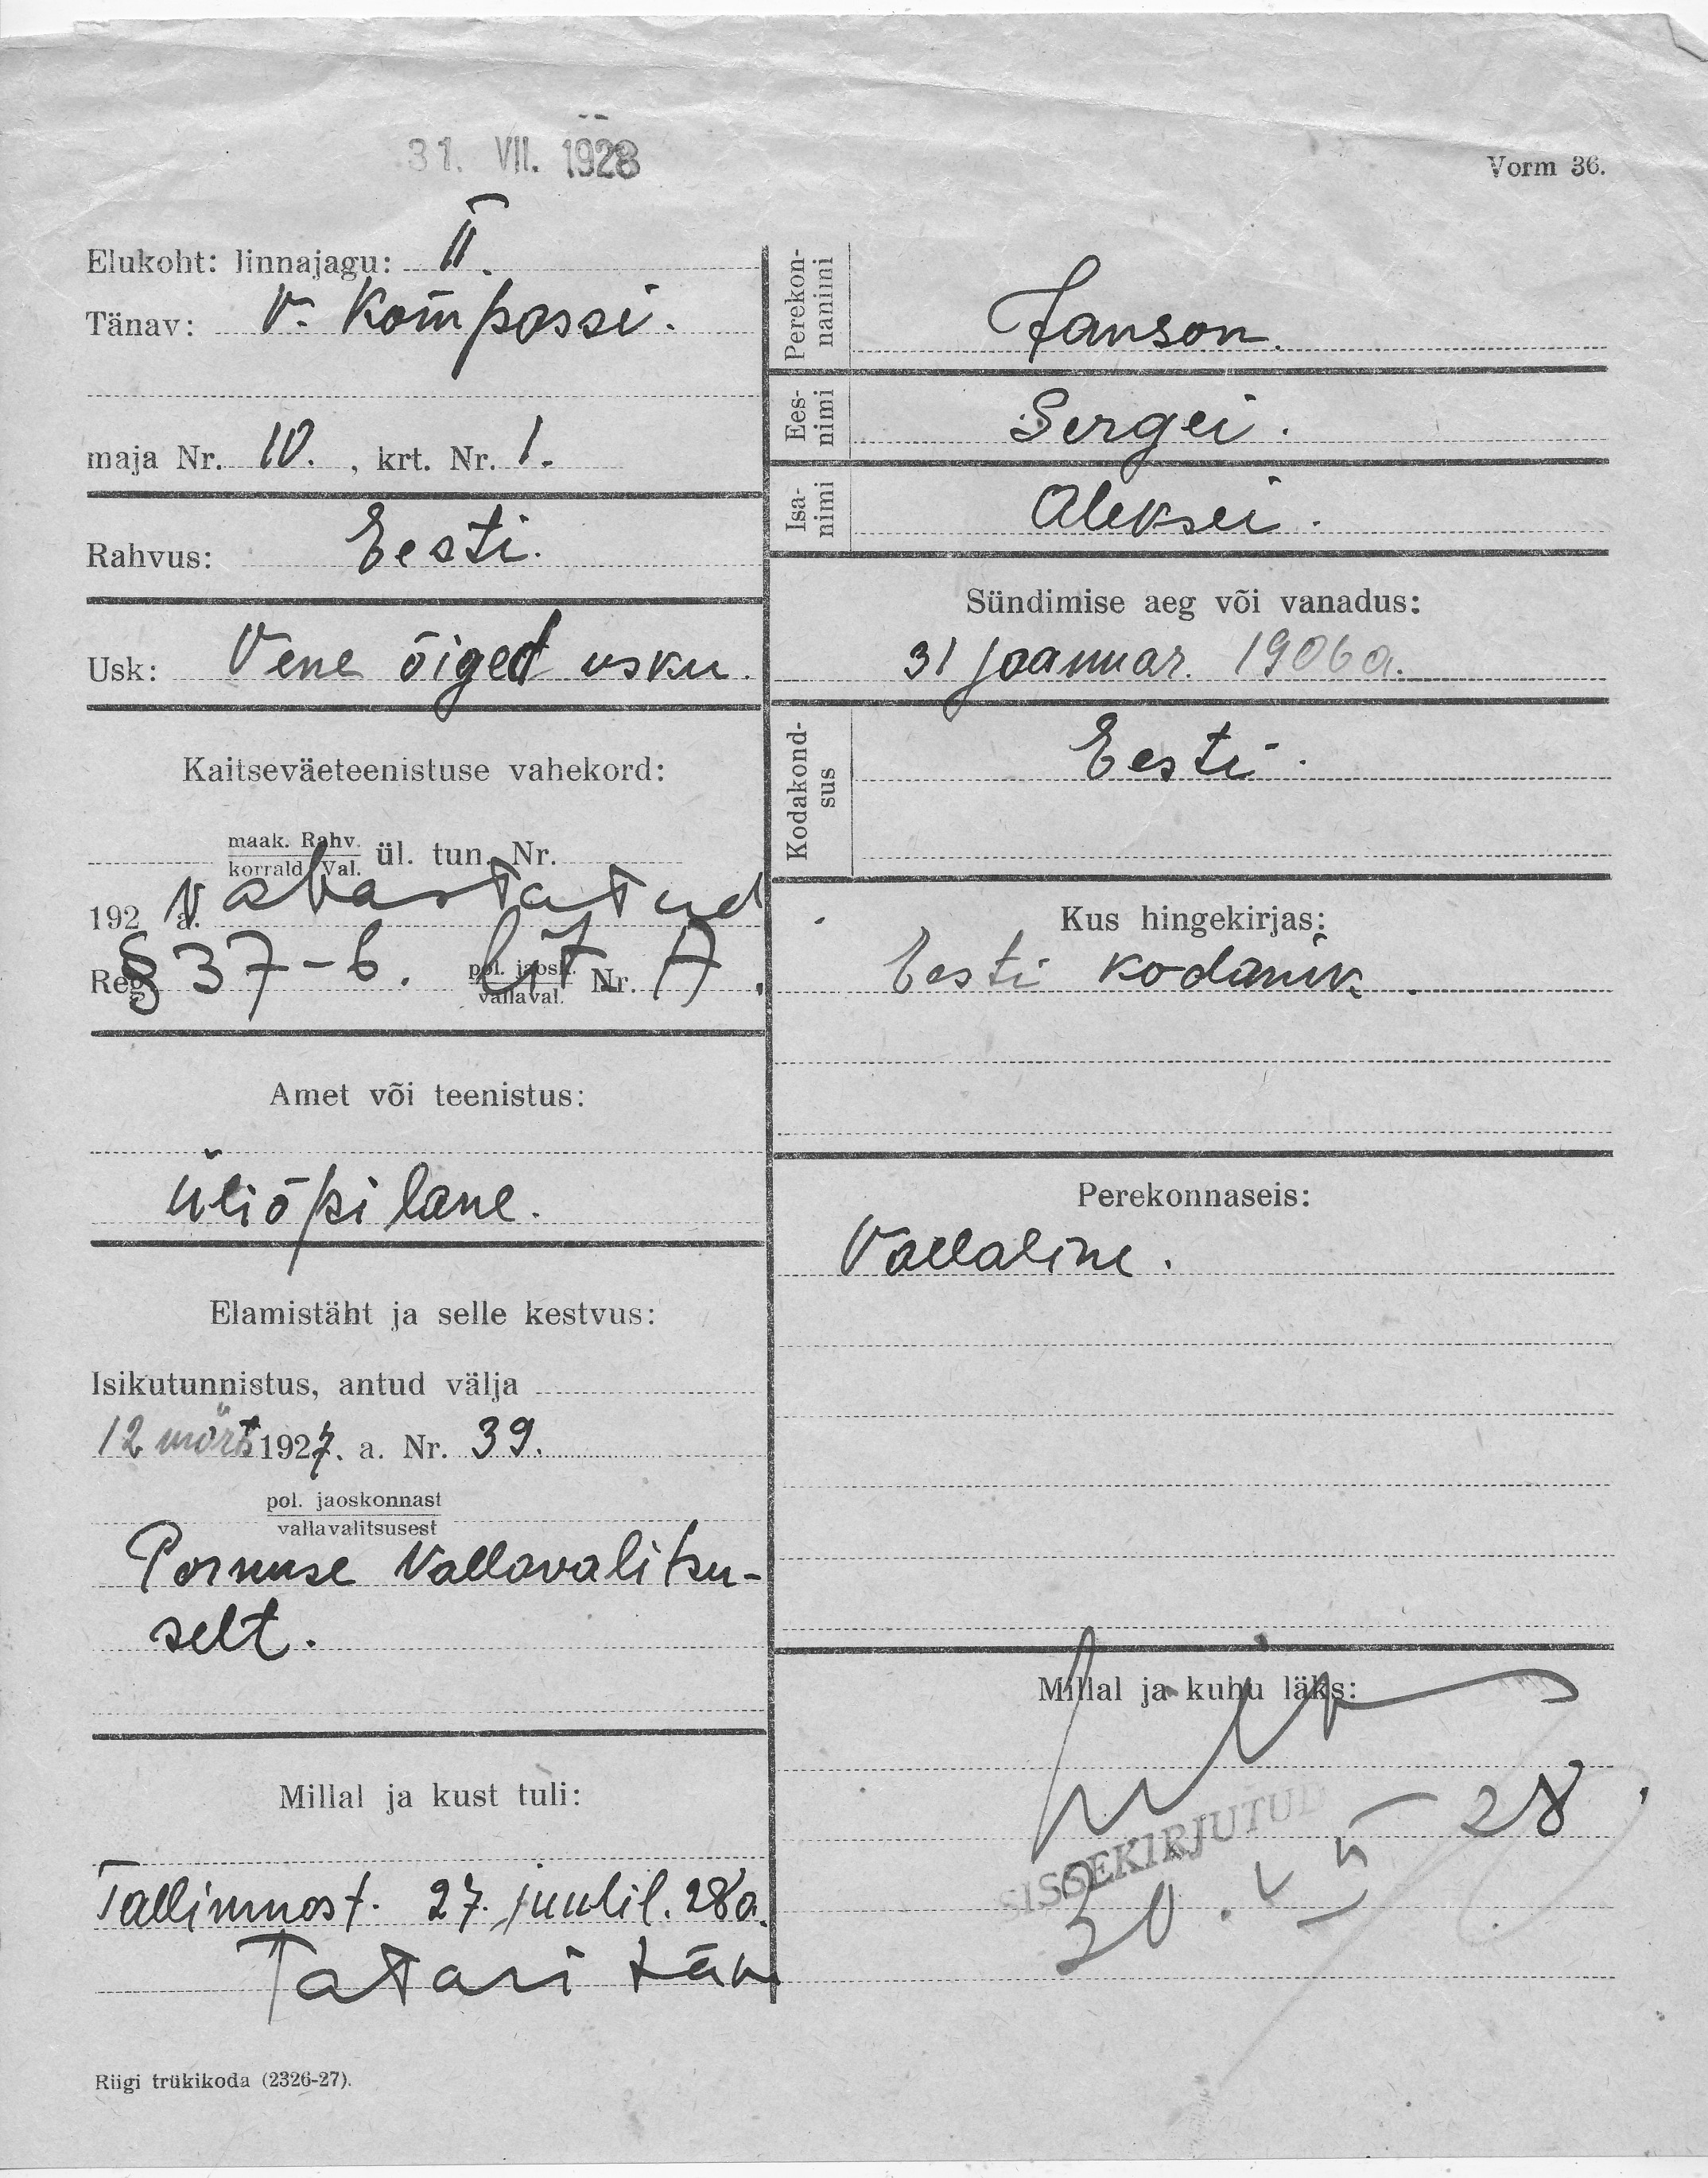 31. VII. 1928
Vorm 36.
Elukoht: linnajagu: II.
Tänav: V. Kompassi.
maja Nr. 10. , krt. Nr. 1.
Rahvus: Eesti.
Usk: Vene õiged usku.
Kaitseväeteenistuse vahekord:
maak. Rahv.
korrald. Val. ül. tun. Nr.
192 a. vabastatud
Reg. § 37-b. lit A.
pol. jaosk.
vallaval. Nr.
Amet või teenistus:
üliõpilane.
Elamistäht ja selle kestvus:
Isikutunnistus, antud välja
12 märts 1927. a. Nr. 39.
pol. jaoskonnast
vallavalitsusest
Pornuse Vallavalitsu-
selt.
Millal ja kust tuli:
Tallinnast. 27. juulil. 28 a.
Tatari tän
Riigi trükikoda (2326-27).
Perekon-
nanimi
Janson.
Ees-
nimi
Sergei.
Isa-
nimi
Aleksei.
Sündimise aeg või vanadus:
31 jaanuar. 1906 a.
Kodakond-
sus
Eesti.
Kus hingekirjas:
Eesti kodanik.
Perekonnaseis:
Vallaline.
Millal ja kuhu läks:
SISSEKIRJUTUD
28.
30.